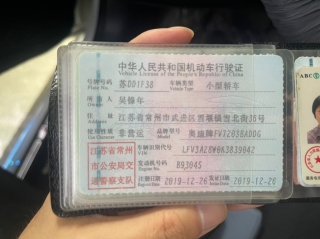 中华人民共和国机动车行驶证
Vehicle License of the People's Republic of China
号牌号码 苏DD1F38 车辆类型 小型轿车
Plate No. Vehicle Type
所有人 吴锋年
Owner
住址 江苏省常州市武进区
Address
使用性质 非营运 品牌型号 奥迪牌FV7203BADDG
Use Character Model
江苏省常州
市公安局交
通警察支队
车辆识别代号
VIN
发动机号码 B93045
Engine No.
注册日期 2019-12-20 发证日期 2019-12-20
Register Date Issue Date
ABC